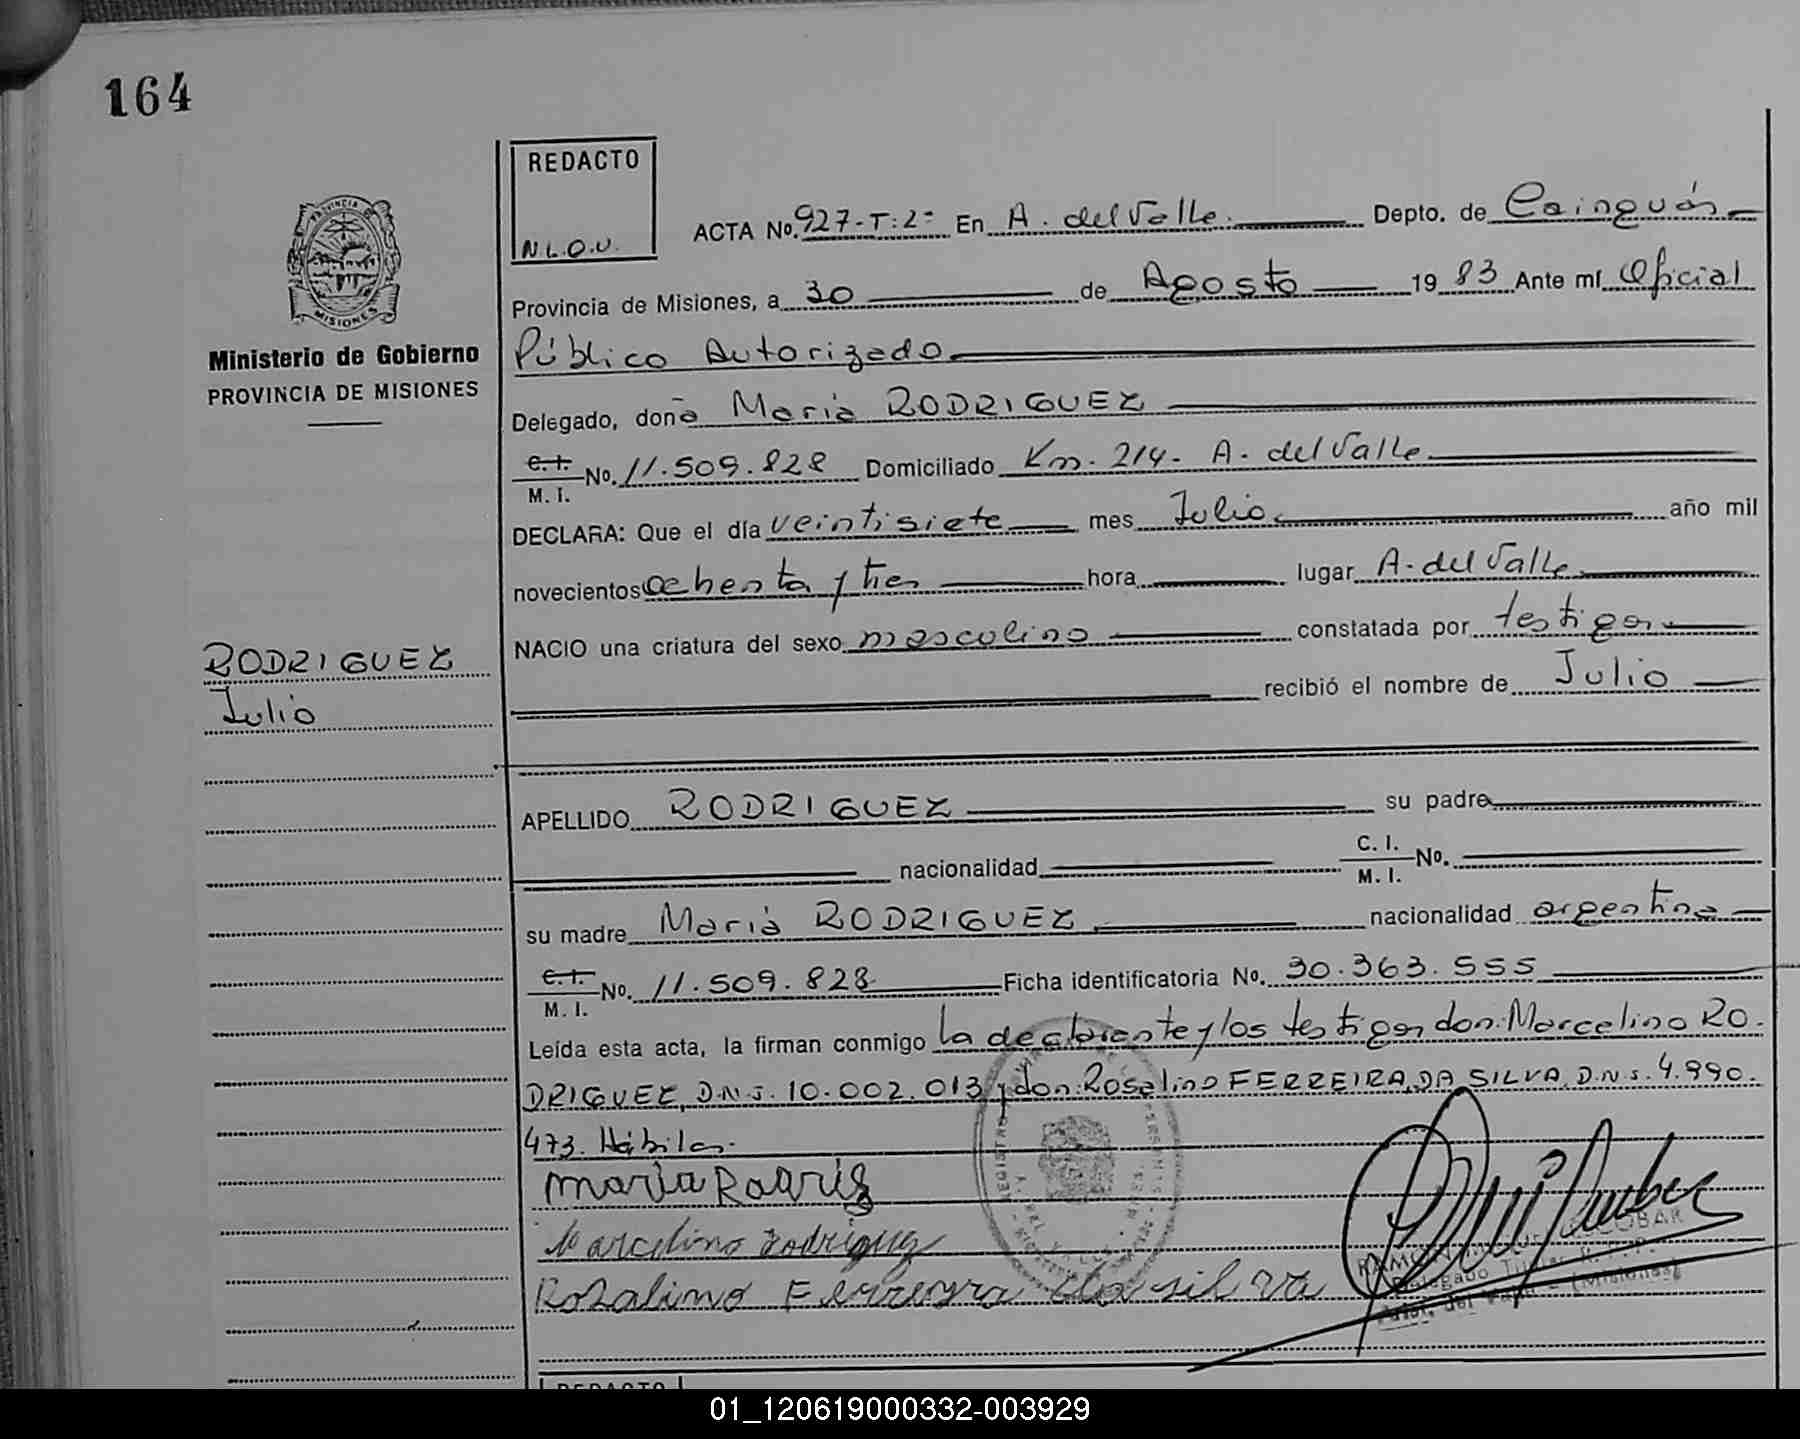 164
REDACTO
N.L.O.V.
PROVINCIA DE
MISIONES
Ministerio de Gobierno
PROVINCIA DE MISIONES
RODRIGUEZ
Julio
ACTA No. 927-T:2= En A. del Valle. Depto. de Cainguás
Provincia de Misiones, a 30 de Agosto 1983 Ante mí Oficial
Público Autorizado
Delegado, doña María RODRIGUEZ
C.I. / M.I. No. 11.509.828 Domiciliado Km. 214- A. del Valle.
DECLARA: Que el día veintisiete mes Julio año mil
novecientos ochenta y tres hora lugar A. del Valle
NACIO una criatura del sexo masculino constatada por testigos
recibió el nombre de Julio
APELLIDO RODRIGUEZ su padre
nacionalidad C. I. / M. I. No.
su madre María RODRIGUEZ nacionalidad argentina
C.I. / M. I. No. 11.509.828 Ficha identificatoria No. 30.363.555
Leída esta acta, la firman conmigo la declarante y los testigos don: Marcelino RO
DRIGUEZ, D.N.I. 10.002.013 y don: Rosalino FERREIRA DA SILVA. D.N.I. 4.990.
473. Hábiles.
maria Roaris
Marcelino Rodriguez
Rozalino Ferreyra da silva
REDACTO
01_120619000332-003929